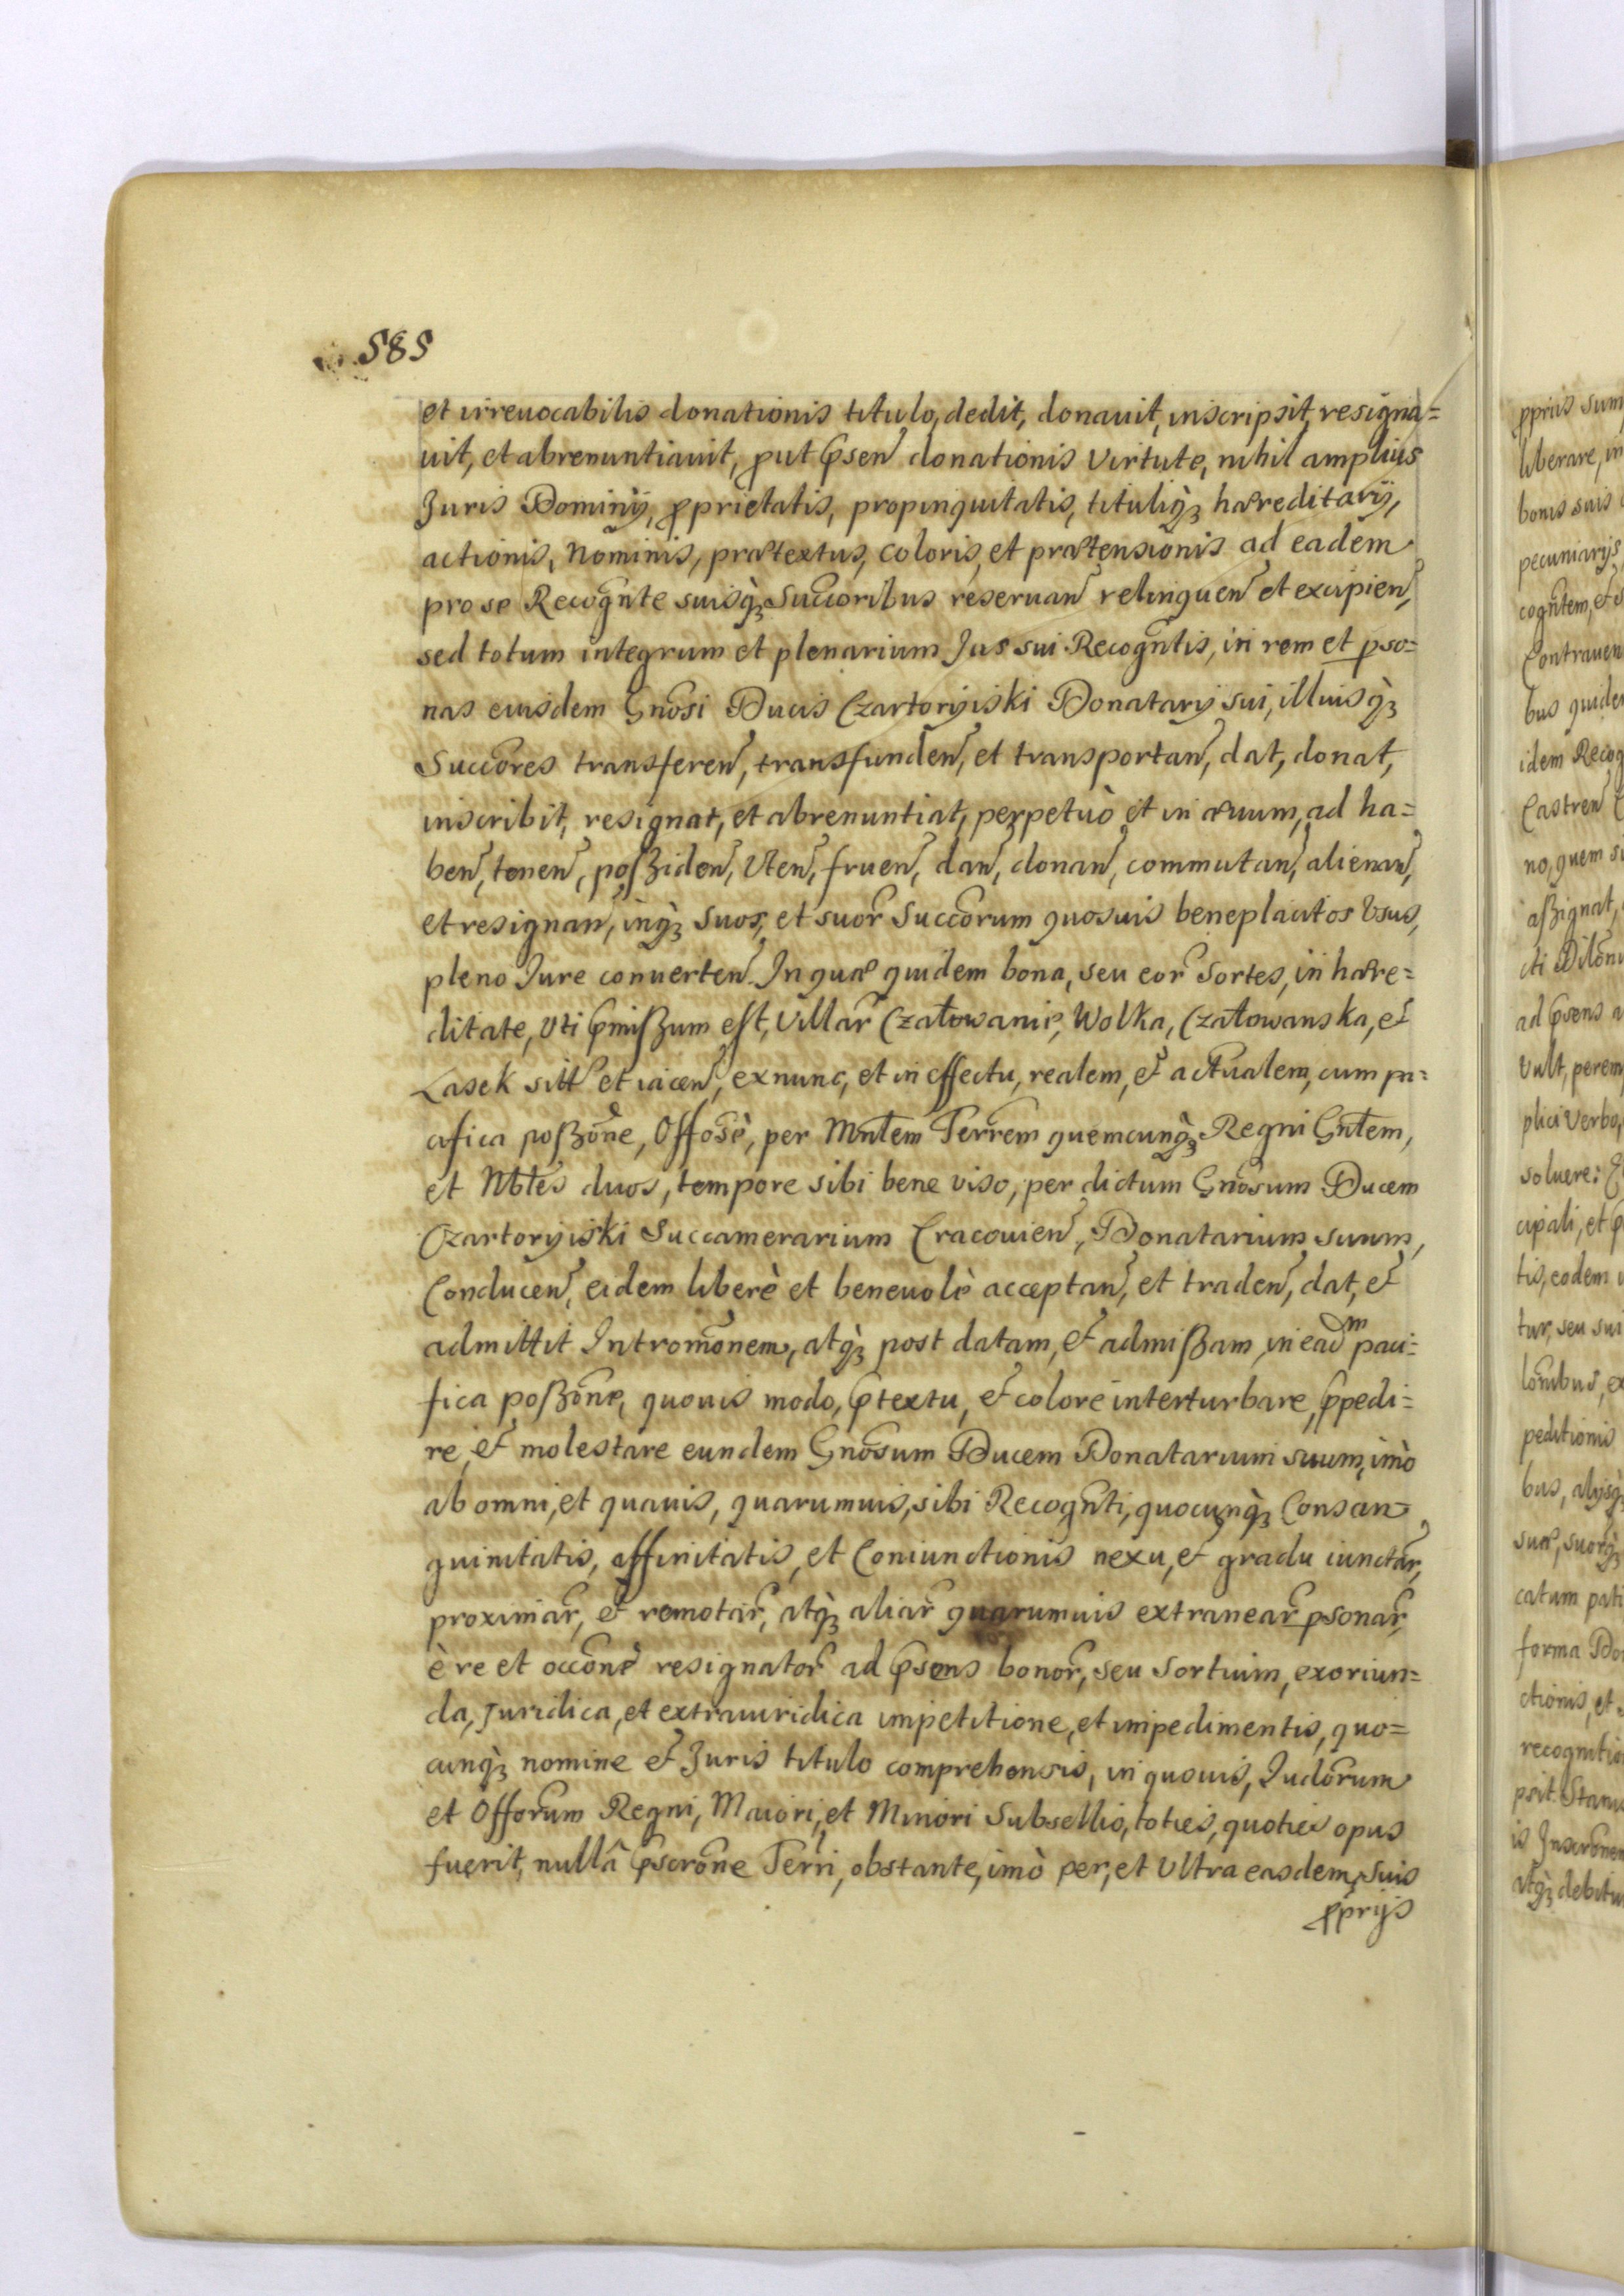 585
et irreuocabilis donationis titulo, dedit, donauit, inscripsit, resigna=
uit, et abrenuntiauit, ꝓut p̃sen̄ donationis Virtute, nihil amplius
Juris Dominÿ, ꝓprietatis, propinquitatis, tituliq̀ꝫ hæreditarÿ,
actionis, Nominis, prætextus, coloris, et prætensionis ad eadem
pro se Recogn̄te suisq̀ꝫ Succ̄oribus reseruan̄ relinquen̄ et excipien̄,
sed totum integrum et plenarium Jus sui Recogn̄tis, in rem et p̱so=
nas eiusdem Gn̄osi Ducis Czartoryiski Donatarÿ sui, illiusq̀ꝫ
Succ̄ores transferen̄, transfunden̄, et transportan̄, dat, donat,
inscribit, resignat, et abrenuntiat, perpetuò et in æuum, ad ha=
ben̄, tenen̄, poßiden̄, Vten̄, fruen̄, dan̄, donan̄, commutan̄, alienan̄,
et resignan̄, inq̀ꝫ suos, et suor̄ Succ̄orum quosuis beneplacitos Vsus,
pleno Jure conuerten̄. In quæ quidem bona, seu eor̄ Sortes, in hære=
ditate, Vti p̃mißum est, Villar̄ Czałowanie, Wolka, Czałowanska, et
Lasek sitt̄ et iacen̄, ex nunc, et in effectu, realem, et actualem, cum pa=
cifica poßōne, Offosè, per Mn̄tem Terrēm quemcunq̀ꝫ Regni Gn̄tem,
et Nb̄tes duos, tempore sibi bene viso, per dictum Gn̄osum Ducem
Czartoryiski Succamerarium Cracouien̄, Donatarium suum,
Conducen̄, eidem liberè et beneuolè acceptan̄, et traden̄, dat, et
admittit Intromōnem, atq̀ꝫ post datam, et admißam, in eadᵐ paci=
fica poßōne, quouis modo, p̃textu, et colore interturbare, p̃pedi=
re, et molestare eundem Gn̄osum Ducem Donatarium suum, imò
ab omni, et quauis, quarumuis, sibi Recogn̄ti, quocunq̀ꝫ Consan
guinitatis, affinitatis, et Coniunctionis nexu, et gradu iunctar̄,
proximar̄, et remotar̄, atq̀ꝫ aliar̄ quarumuis extranear̄ p̱sonar̄,
è re et occōne resignator̄ ad p̃sens bonor̄, seu Sortium, exoriun=
da, Juridica, et extraiuridica impetitione, et impedimentis, quo=
cunq̀ꝫ nomine et Juris titulo comprehensis, in quouis, Judōrum
et Offōrum Regni, Maiori, et Minori Subsellio, toties, quoties opus
fuerit, nullâ p̃scrōne Terrī, obstante, imò per, et Vltra easdem, suis
ꝓprijs